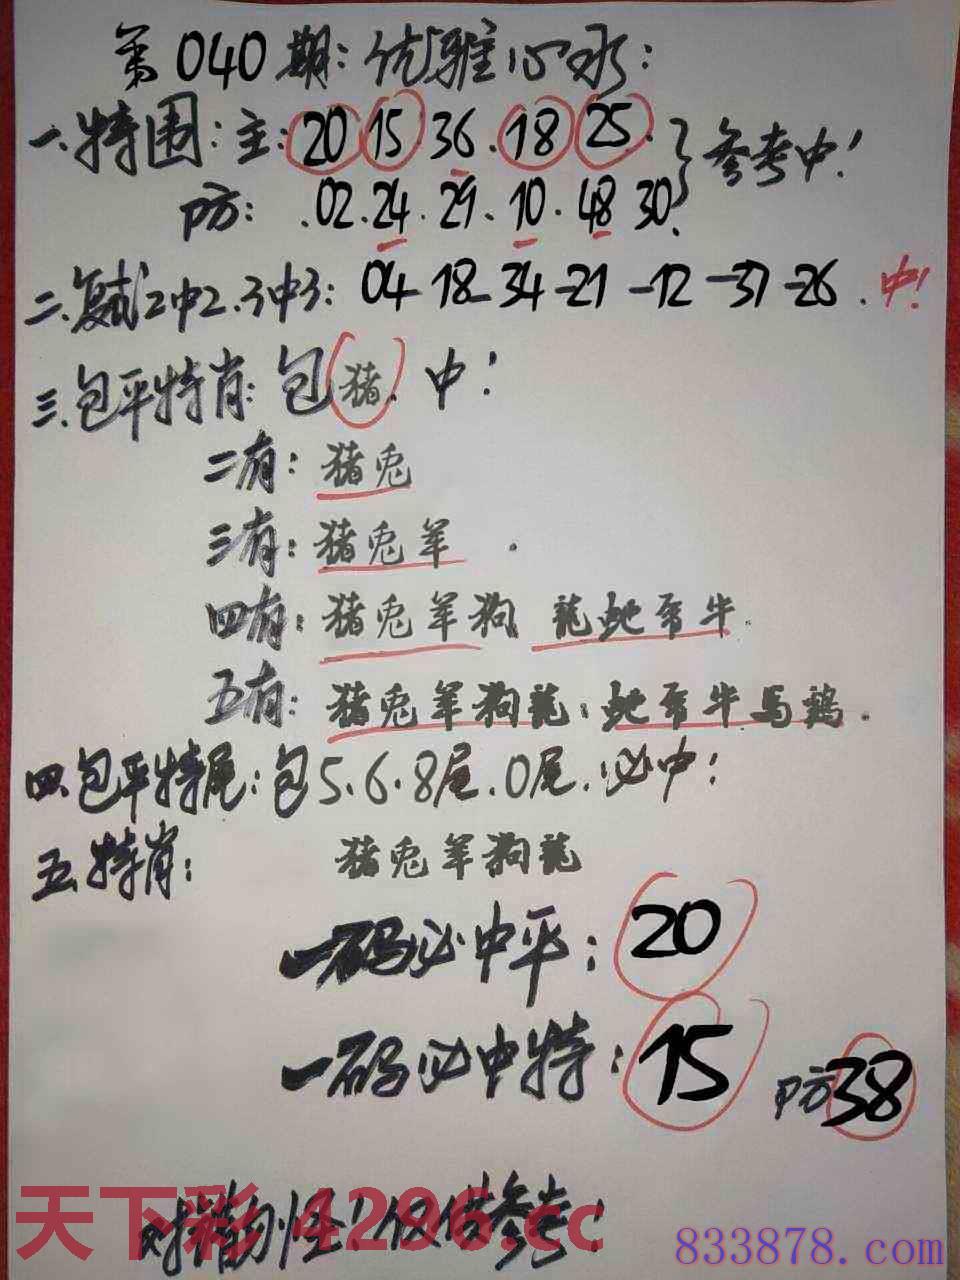 第040期:优雅心水:
一.特围:主:20 15.36.18 25.
防:.02.24.29.10.48 30.
}参考中!
二.复式2中2.3中3:04-18-34-21-12-37-26.中!
三.包平特肖:包猪.中!
二有:猪兎
三有:猪兎羊.
四有:猪兎羊狗 龍蛇牛.
五有:猪兎羊狗龍:蛇牛馬鷄.
四.包平特尾:包5.6.8尾.0尾.必中!
五.特肖:猪兎羊狗龍
一码必中平:20
一码必中特:15 防38
对错勿怪!仅供参考!
天下彩 4296.cc
833878.com